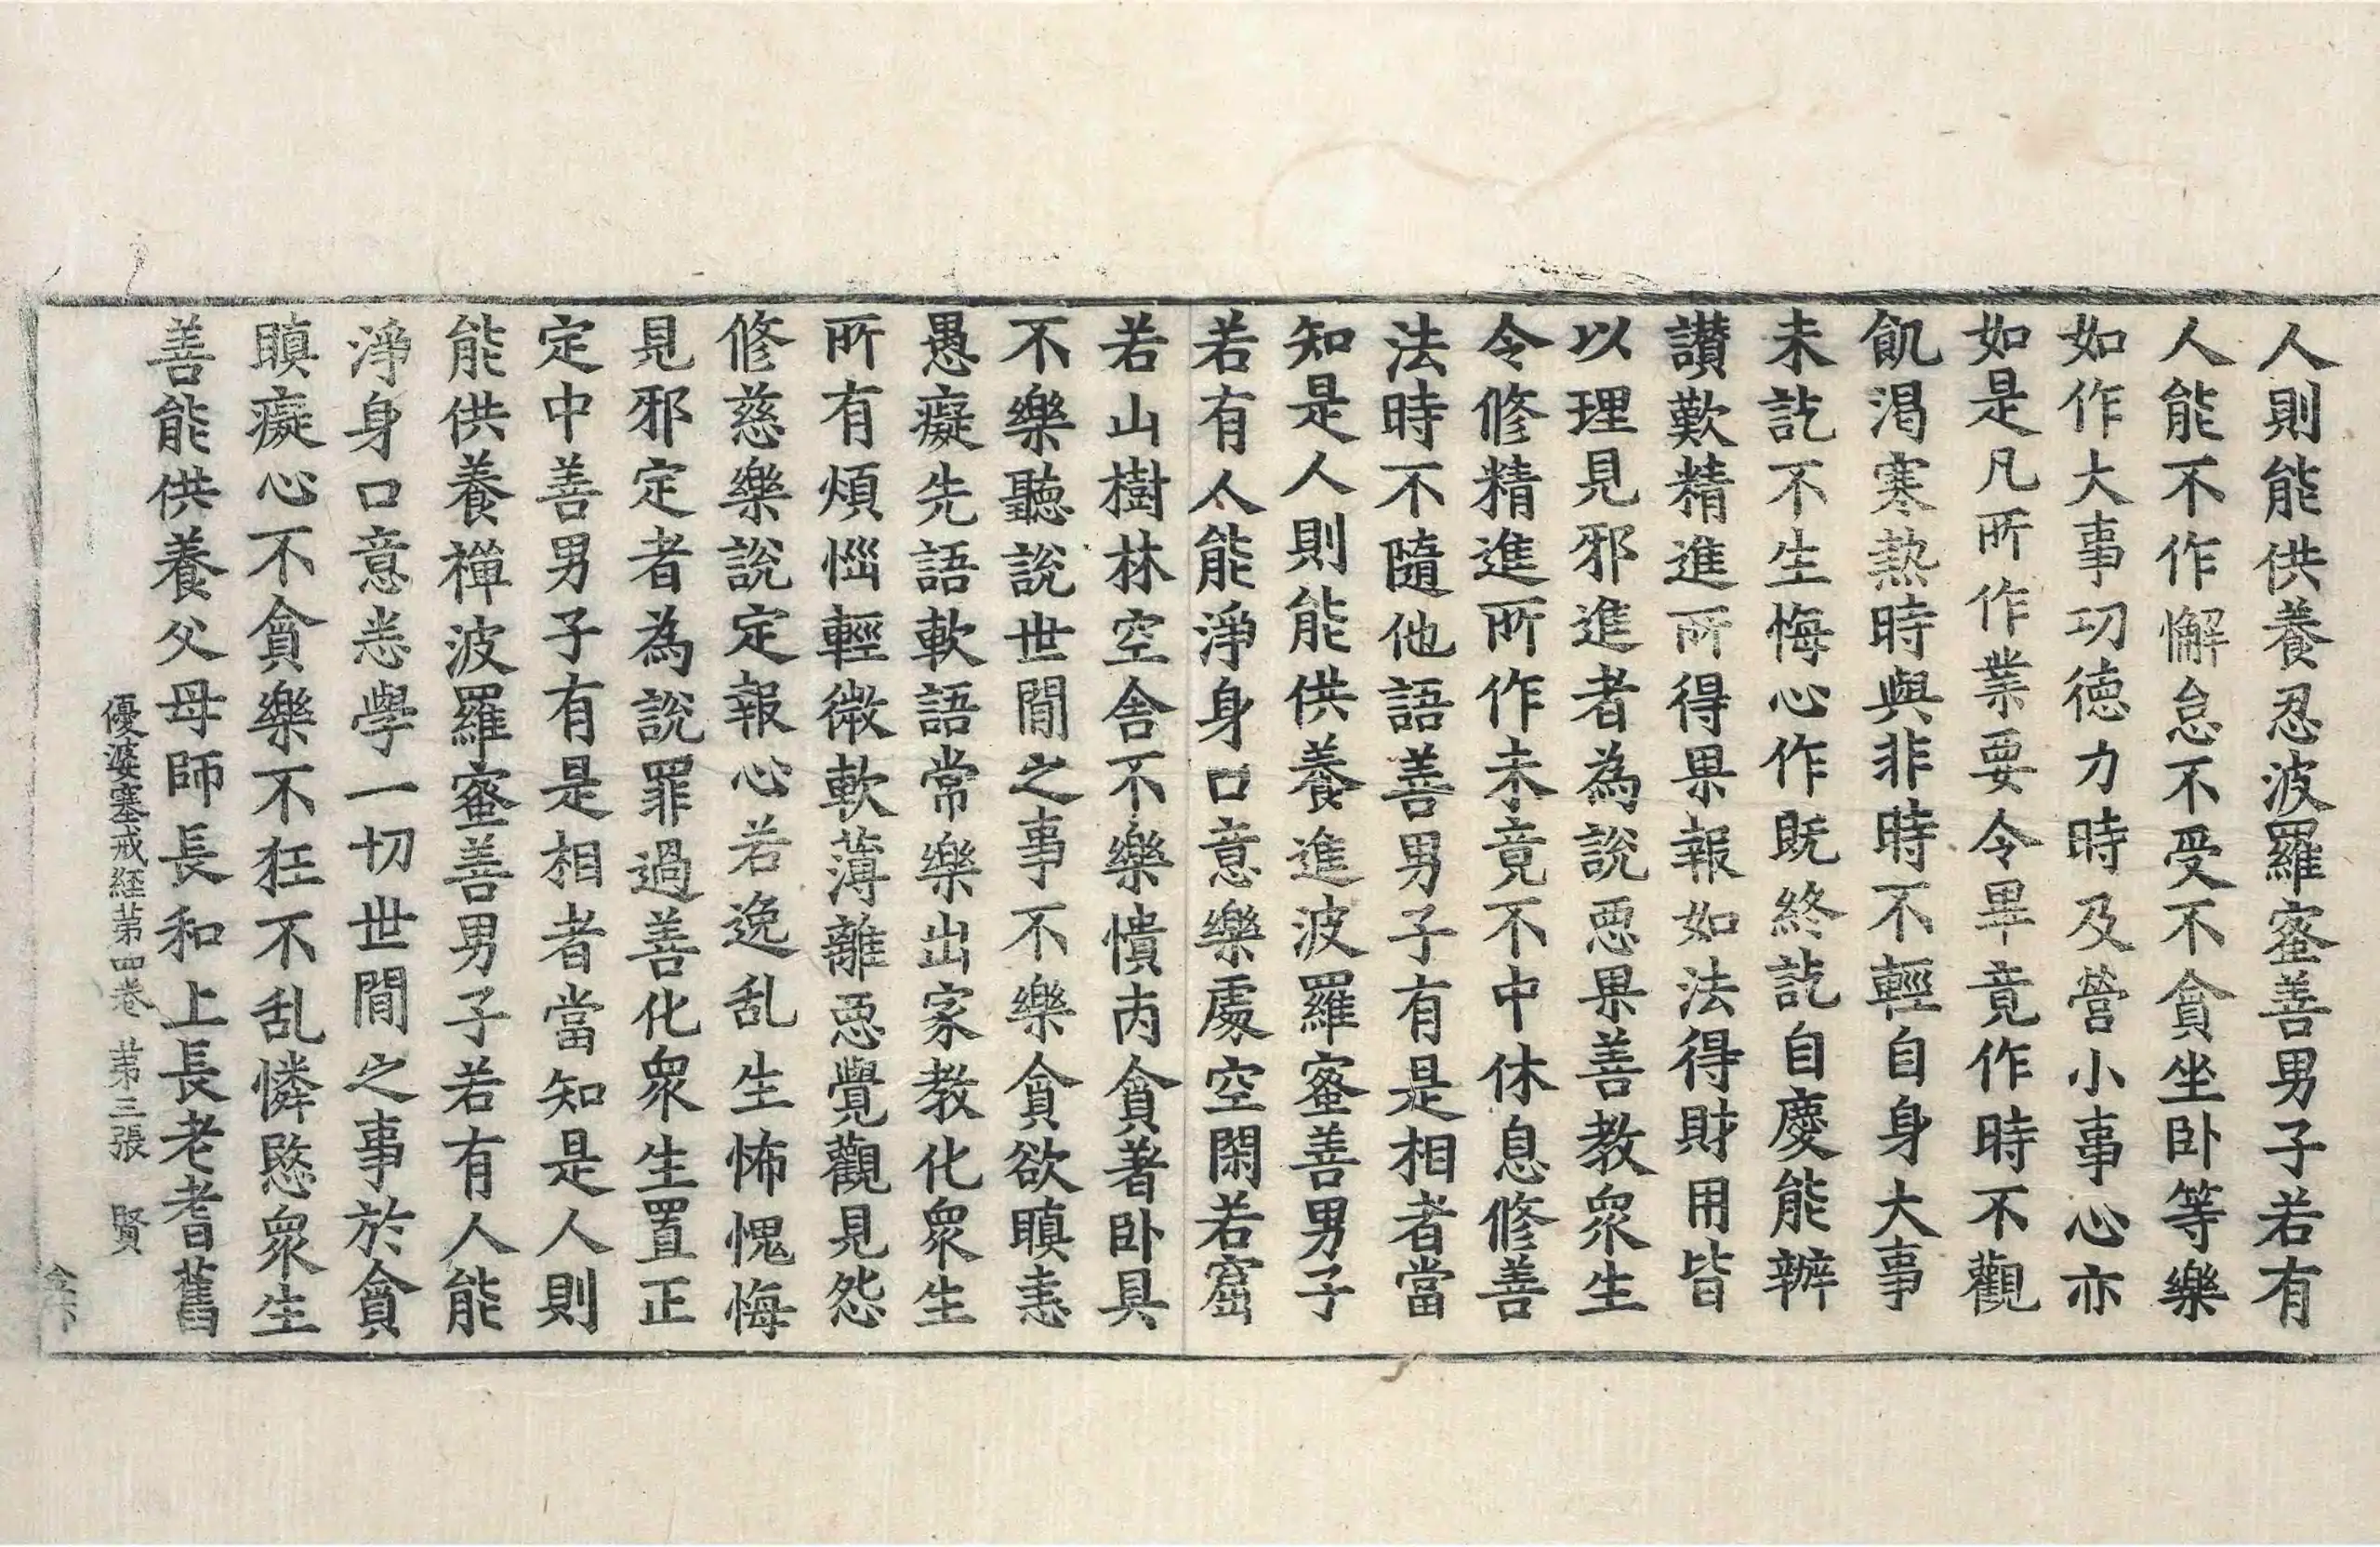 人則能供養忍波羅蜜善男子若有
人能不作懈怠不受不貪坐卧等樂
如作大事功德力時及營小事心亦
如是凡所作業要令畢竟作時不觀
飢渴寒熱時與非時不輕自身大事
未訖不生悔心作既終訖自慶能辦
讃歎精進所得果報如法得財用皆
以理見邪進者為說惡果善教衆生
令修精進所作未竟不中休息修善
法時不隨他語善男子有是相者當
知是人則能供養進波羅蜜善男子
若有人能淨身口意樂處空閑若窟
若山樹林空舍不樂憒丙貪著卧具
不樂聽說世間之事不樂貪欲瞋恚
愚癡先語軟語常樂出家教化衆生
所有煩惱輕微軟薄離惡覺觀見怨
修慈樂說定報心若逸乱生怖愧悔
見邪定者為說罪過善化衆生置正
定中善男子有是相者當知是人則
能供養禪波羅蜜善男子若有人能
淨身口意悉學一切世間之事於貪
瞋癡心不貪樂不狂不乱憐愍衆生
善能供養父母師長和上長老耆舊
優婆塞戒経苐四卷 苐三張 賢